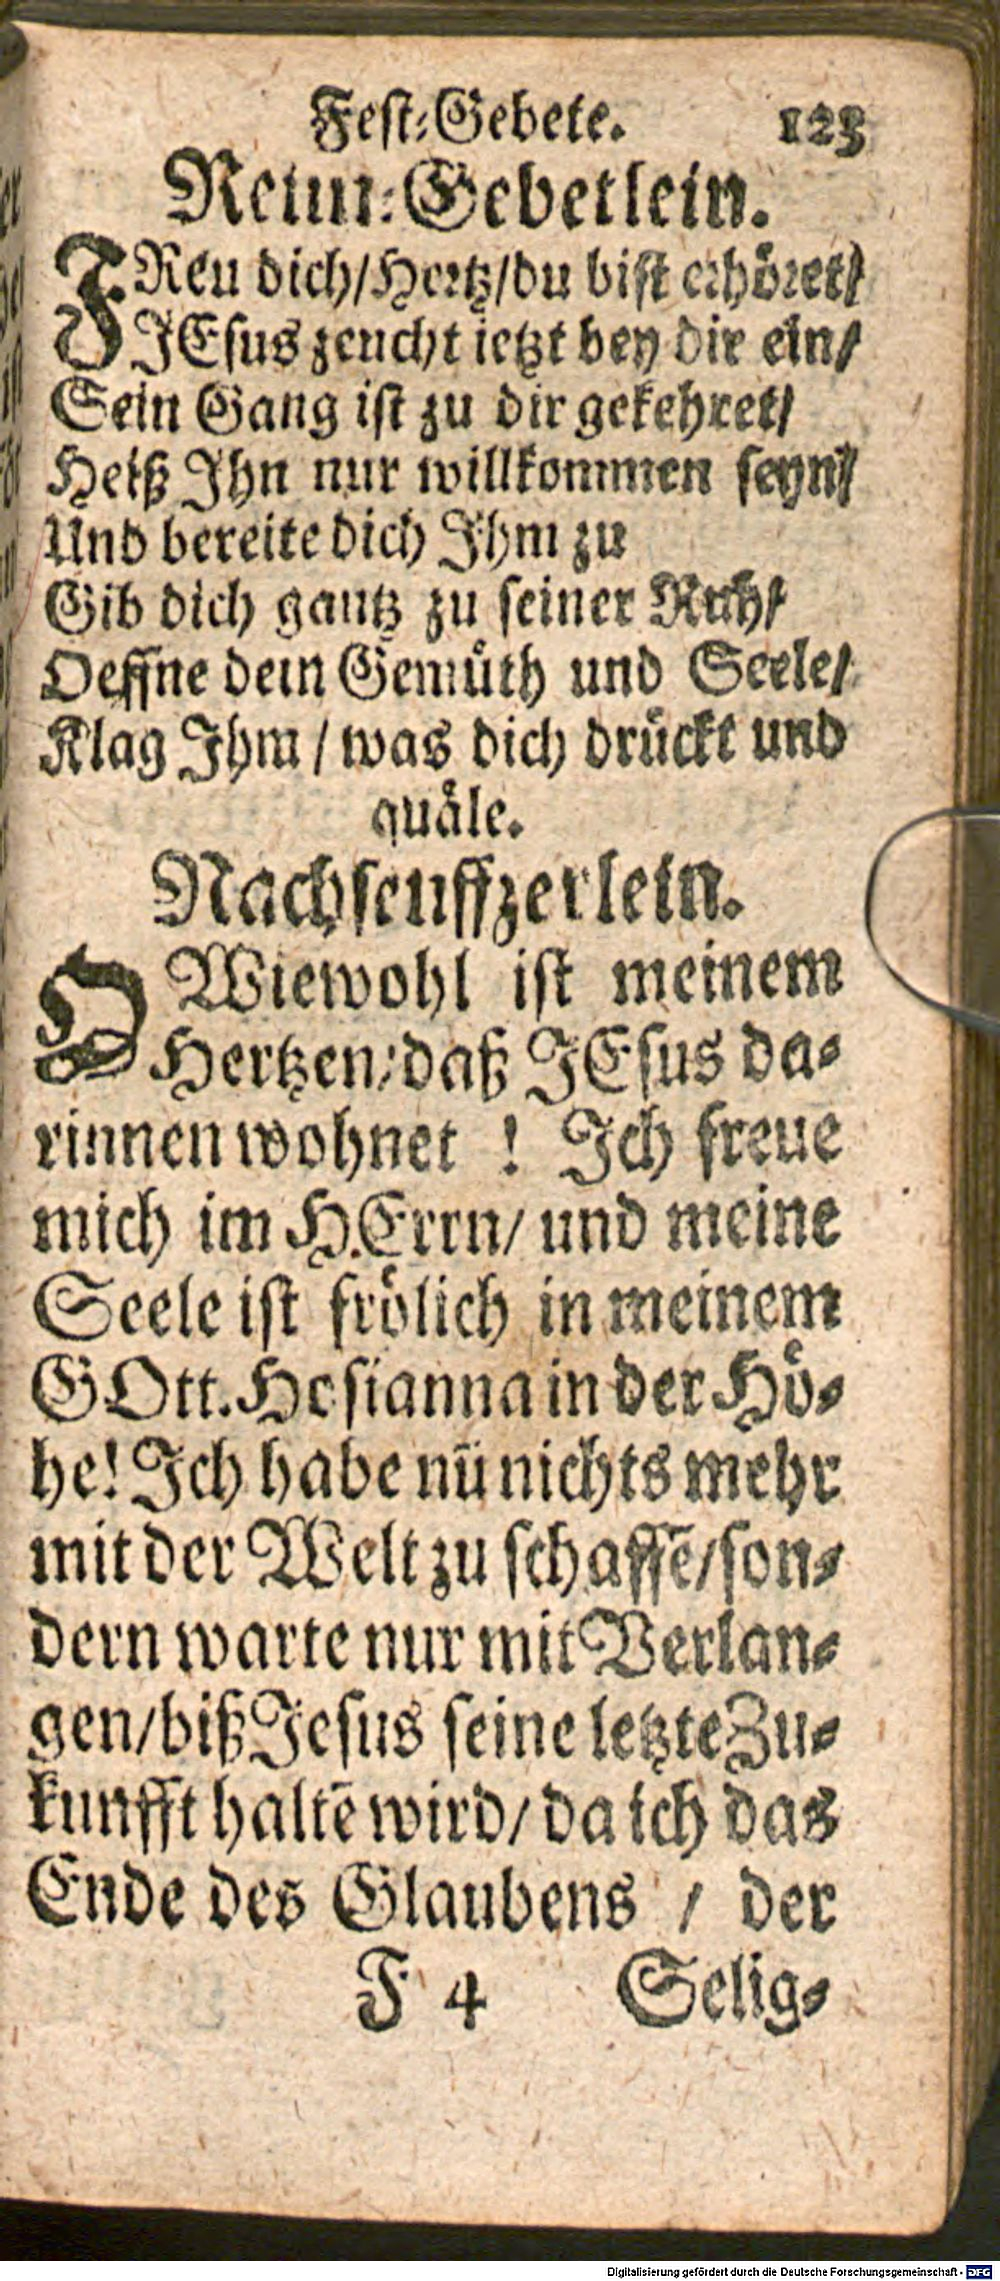 Fest-Gebete. 123
Reim-Gebetlein.
FReu dich/Hertz/du bist erhöret/
JEsus zeucht ietzt bey dir ein/
Sein Gang ist zu dir gekehret/
Heiß Ihn nur willkommen seyn/
Und bereite dich Ihm zu
Gib dich gantz zu seiner Ruh/
Oeffne dein Gemüth und Seele/
Klag Ihm / was dich drückt und
quäle.
Nachseuffzerlein.
O Wiewohl ist meinem
Hertzen/daß JEsus da-
rinnen wohnet ! Ich freue
mich im HErrn/ und meine
Seele ist frölich in meinem
GOtt. Hosianna in der Hö-
he! Ich habe nū nichts mehr
mit der Welt zu schaffē/son-
dern warte nur mit Verlan-
gen/biß Jesus seine letzte Zu-
kunfft haltē wird/ da ich das
Ende des Glaubens / der
F 4 Selig-
Digitalisierung gefördert durch die Deutsche Forschungsgemeinschaft - DFG